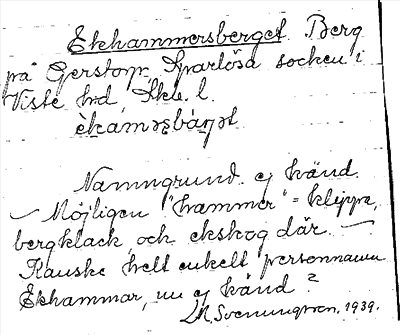 Ekhammersberget. Berg
på Gerstorp Sparlösa socken i
Viste hd, Skbg. l.
èkaməsbárjət
Namngrund ej känd.
– Möjligen "hammer" = klippa,
bergklack och ekskog där. –
Kanske helt enkelt personnamn
Ekhammar, nu ej känd?
Svenungsson. 1939.